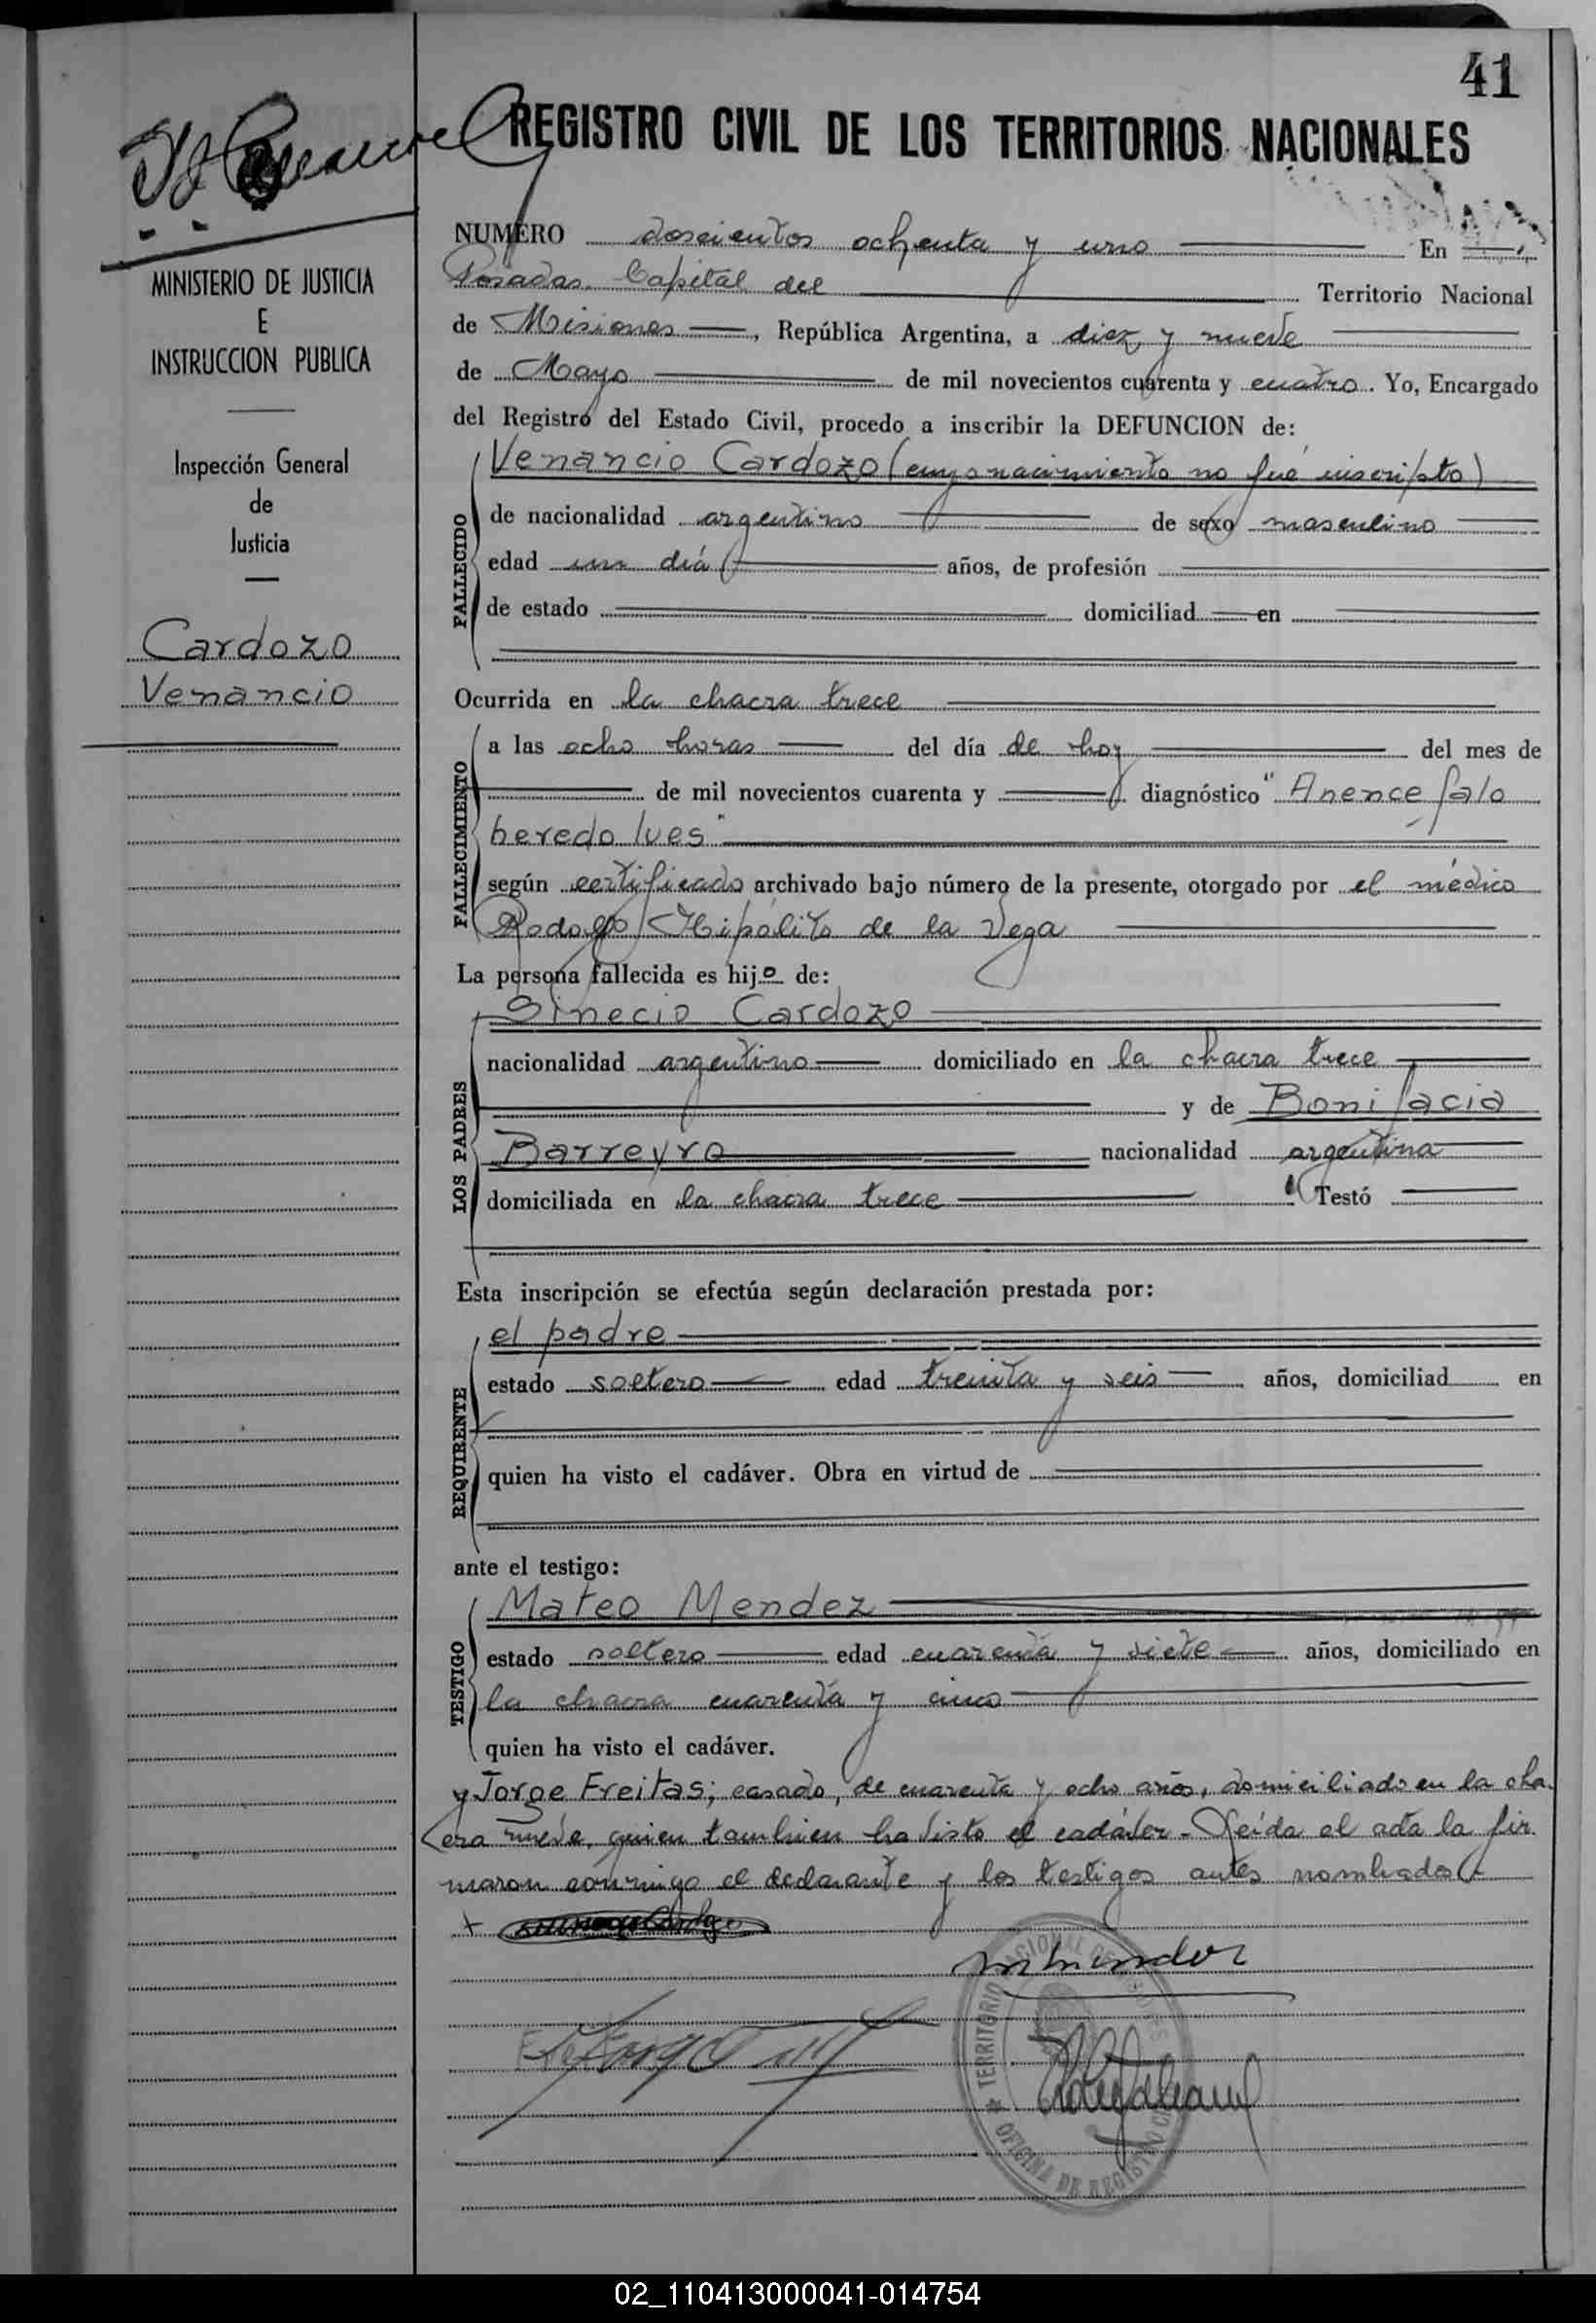 41
REGISTRO CIVIL DE LOS TERRITORIOS NACIONALES
NUMERO doscientos ochenta y uno En
Posadas. Capital del Territorio Nacional
de Misiones, República Argentina, a diez y nueve
de Mayo de mil novecientos cuarenta y cuatro. Yo, Encargado
del Registro del Estado Civil, procedo a inscribir la DEFUNCION de:
MINISTERIO DE JUSTICIA
E
INSTRUCCION PUBLICA
Inspección General
de
Justicia
Cardozo
Venancio
FALLECIDO
Venancio Cardozo (cuyo nacimiento no fué inscripto)
de nacionalidad argentino de sexo masculino
edad un día años, de profesión
de estado domiciliad en
Ocurrida en la chacra trece
FALLECIMIENTO
a las ocho horas del día de hoy del mes de
de mil novecientos cuarenta y diagnóstico "Anencefalo
heredo lues"
según certificado archivado bajo número de la presente, otorgado por el médico
Rodolfo Hipólito de la Vega
La persona fallecida es hijo de:
LOS PADRES
Sinecio Cardozo
nacionalidad argentino domiciliado en la chacra trece
y de Bonifacia
Barreyro nacionalidad argentina
domiciliada en la chacra trece Testó
Esta inscripción se efectúa según declaración prestada por:
REQUIRENTE
el padre
estado soltero edad treinta y seis años, domiciliad en
quien ha visto el cadáver. Obra en virtud de
ante el testigo:
TESTIGO
Mateo Mendez
estado soltero edad cuarenta y siete años, domiciliado en
la chacra cuarenta y cinco
quien ha visto el cadáver.
y Jorge Freitas; casado, de cuarenta y ocho años, domiciliado en la cha
cra nueve, quien tambien ha visto el cadáver - Leída el acta la fir
maron conmigo el declarante y los testigos antes nombrados
TERRITORIO NACIONAL DE MISIONES
OFICINA DE REGISTRO CIVIL
02_110413000041-014754